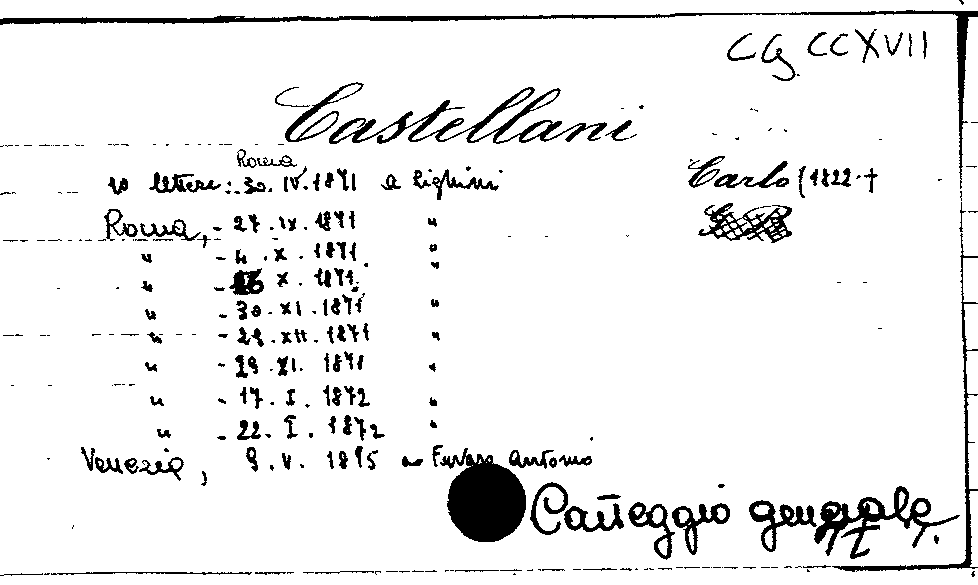 CG CCXVII
Castellani
Carlo (1822 †
Roma
10 lettere: 30. IV. 1871 a Lighini
Roma, - 27. IX. 1871 "
" - 4. X. 1871 "
" - X. 1871 "
" - 30. XI. 1871 "
" - 29. XII. 1871 "
" - 29. XI. 1871 "
" - 17. I. 1872 "
" - 22. I. 1872 "
Venezia, 9. V. 1895 a Antonio
Carteggio generale